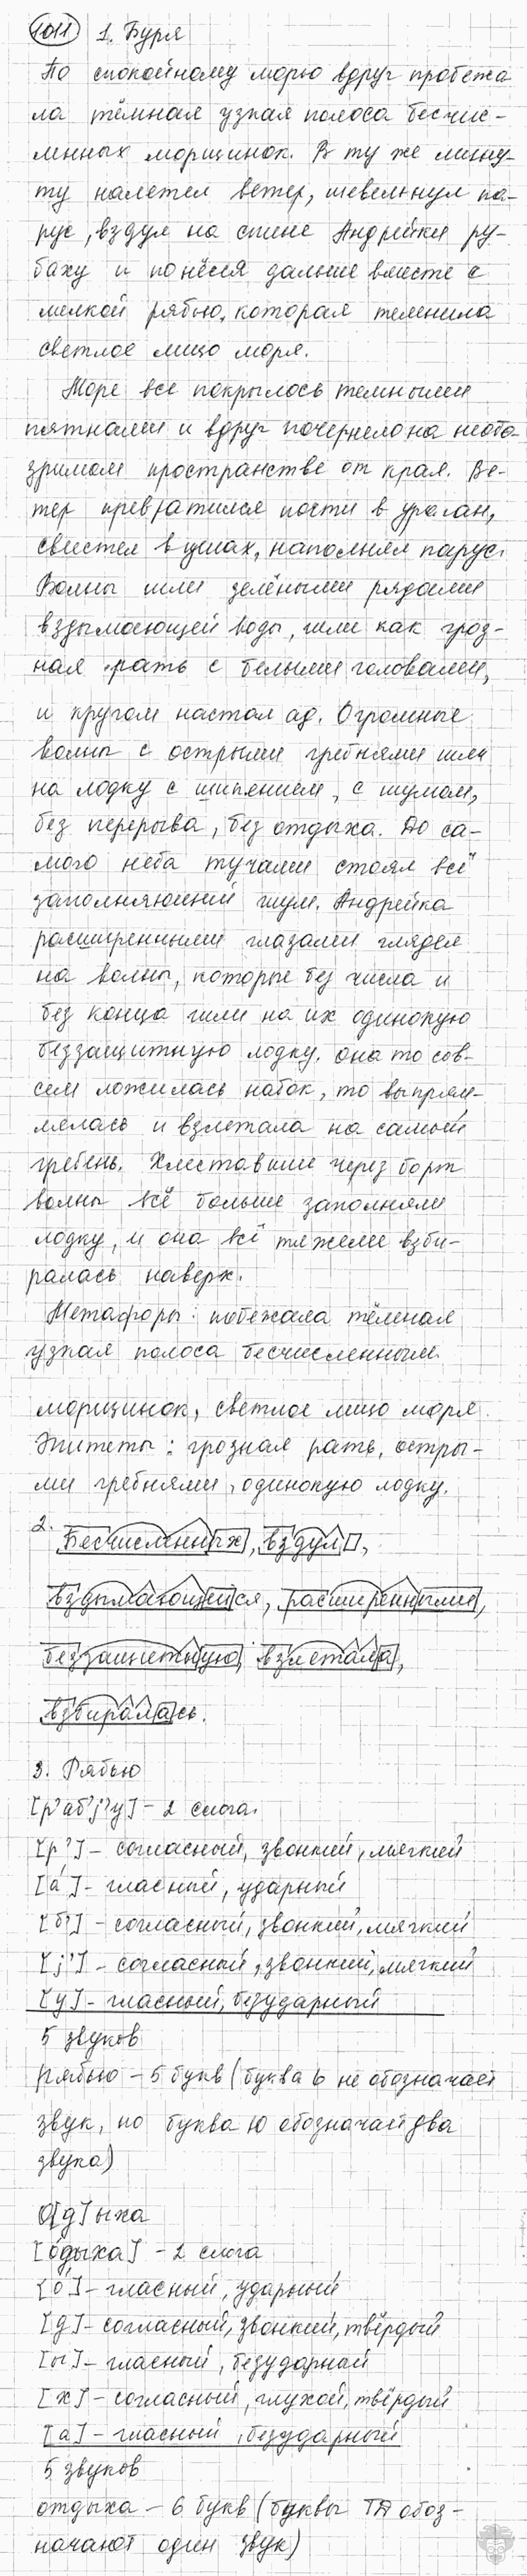 1011 1. Буря
По спокойному морю вдруг пробежа
ла тёмная узкая полоса бесчис-
ленных морщинок. В ту же мину-
ту налетел ветер, шевельнул па-
рус, вздул на спине Андрейки ру-
баху и понёсся дальше вместе с
мелкой рябью, которая темнила
светлое лицо моря.
Море все покрылось темными
пятнами и вдруг почернело на необо-
зримом пространстве от края. Ве-
тер превратился почти в ураган,
свистел в ушах, наполнял парус.
Волны шли зелёными рядами
вздымающей воды, шли как гроз-
ная рать с белыми головами,
и кругом настал ад. Огромные
волны с острыми гребнями шли
на лодку с шипением, с шумом,
без перерыва, без отдыха. До са-
мого неба тучами стоял всё
заполняющий шум. Андрейка
расширенными глазами глядел
на волны, которые без числа и
без конца шли на их одинокую
беззащитную лодку. Она то сов-
сем ложилась набок, то выпрям-
лялась и взлетала на самый
гребень. Хлеставшие через борт
волны всё больше заполняли
лодку, и она всё тяжелее взби-
ралась наверх.
Метафоры: побежала тёмная
узкая полоса бесчисленным
морщинок, светлое лицо моря.
Эпитеты: грозная рать, остры-
ми гребнями, одинокую лодку.
2. Бесчисленных, вздул,
вздымающейся, расширенными,
беззащитную, взлетала,
взбиралась.
3. Рябью
[р'аб'j'у] – 2 слога.
[р'] – согласный, звонкий, мягкий
[а́] – гласный, ударный
[б'] – согласный, звонкий, мягкий
[j'] – согласный, звонкий, мягкий
[у] – гласный, безударный
5 звуков
Рябью – 5 букв (буква ь не обозначает
звук, но буква ю обозначает два
звука)
О[д]ыха
[о́дыха] – 2 слога
[о́] – гласный, ударный
[д] – согласный, звонкий, твёрдый
[ы] – гласный, безударный
[х] – согласный, глухой, твёрдый
[а] – гласный, безударный
5 звуков
отдыха – 6 букв (буквы ТД обоз-
начают один звук)